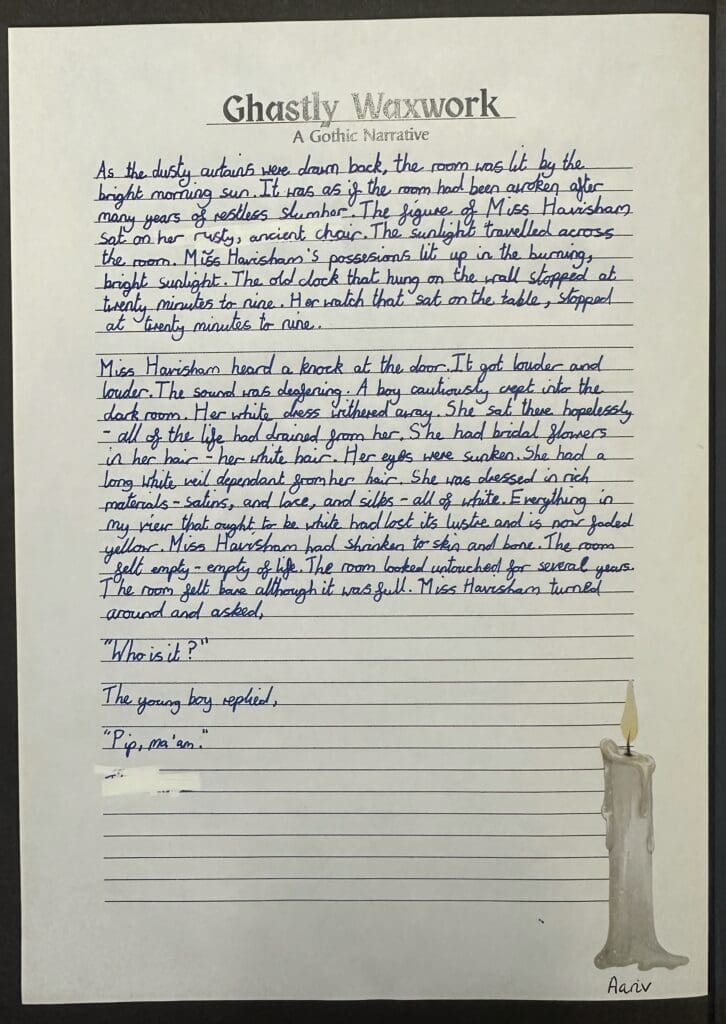 Ghastly Waxwork
A Gothic Narrative
As the dusty curtains were drawn back, the room was lit by the
bright morning sun. It was as if the room had been awoken after
many years of restless slumber. The figure of Miss Havisham
sat on her rusty, ancient chair. The sunlight travelled across
the room. Miss Havisham's possesions lit up in the burning,
bright sunlight. The old clock that hung on the wall stopped at
twenty minutes to nine. Her watch that sat on the table, stopped
at twenty minutes to nine.
Miss Havisham heard a knock at the door. It got louder and
louder. The sound was deafening. A boy cautiously crept into the
dark room. Her white dress withered away. She sat there hopelessly
- all of the life had drained from her. She had bridal flowers
in her hair - her white hair. Her eyes were sunken. She had a
long white veil dependant from her hair. She was dressed in rich
materials - satins, and lace, and silks - all of white. Everything in
my view that ought to be white had lost its lustre and is now faded
yellow. Miss Havisham had shrunken to skin and bone. The room
felt empty - empty of life. The room looked untouched for several years.
The room felt bare although it was full. Miss Havisham turned
around and asked,
"Who is it?"
The young boy replied,
"Pip, ma'am."
Aariv